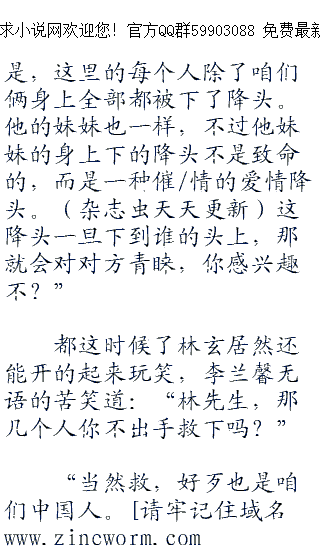 求小说网欢迎您！官方QQ群59903088 免费最新
是，这里的每个人除了咱们
俩身上全部都被下了降头。
他的妹妹也一样，不过他妹
妹的身上下的降头不是致命
的，而是一种催/情的爱情降
头。（杂志虫天天更新）这
降头一旦下到谁的头上，那
就会对对方青睐，你感兴趣
不？”
都这时候了林玄居然还
能开的起来玩笑，李兰馨无
语的苦笑道：“林先生，那
几个人你不出手救下吗？”
“当然救，好歹也是咱
们中国人。[请牢记住域名
www.zincworm.com